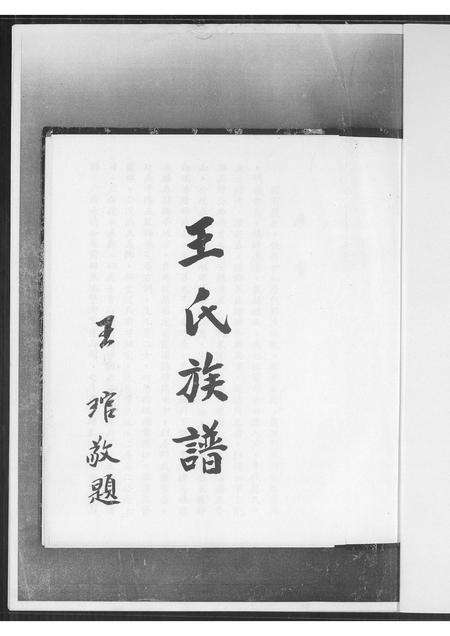 王氏族譜
王琯敬題